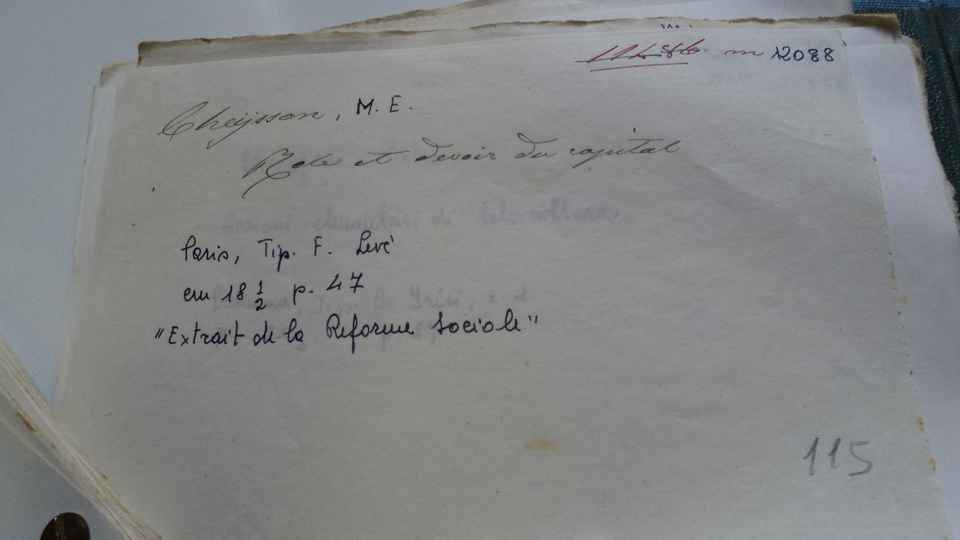 m 12088
Cheysson, M. E.
Role et devoir du capital
Paris, Tip. F. Levé
cm 18 1/2 p. 47
"Extrait de la Reforme Sociale"
115